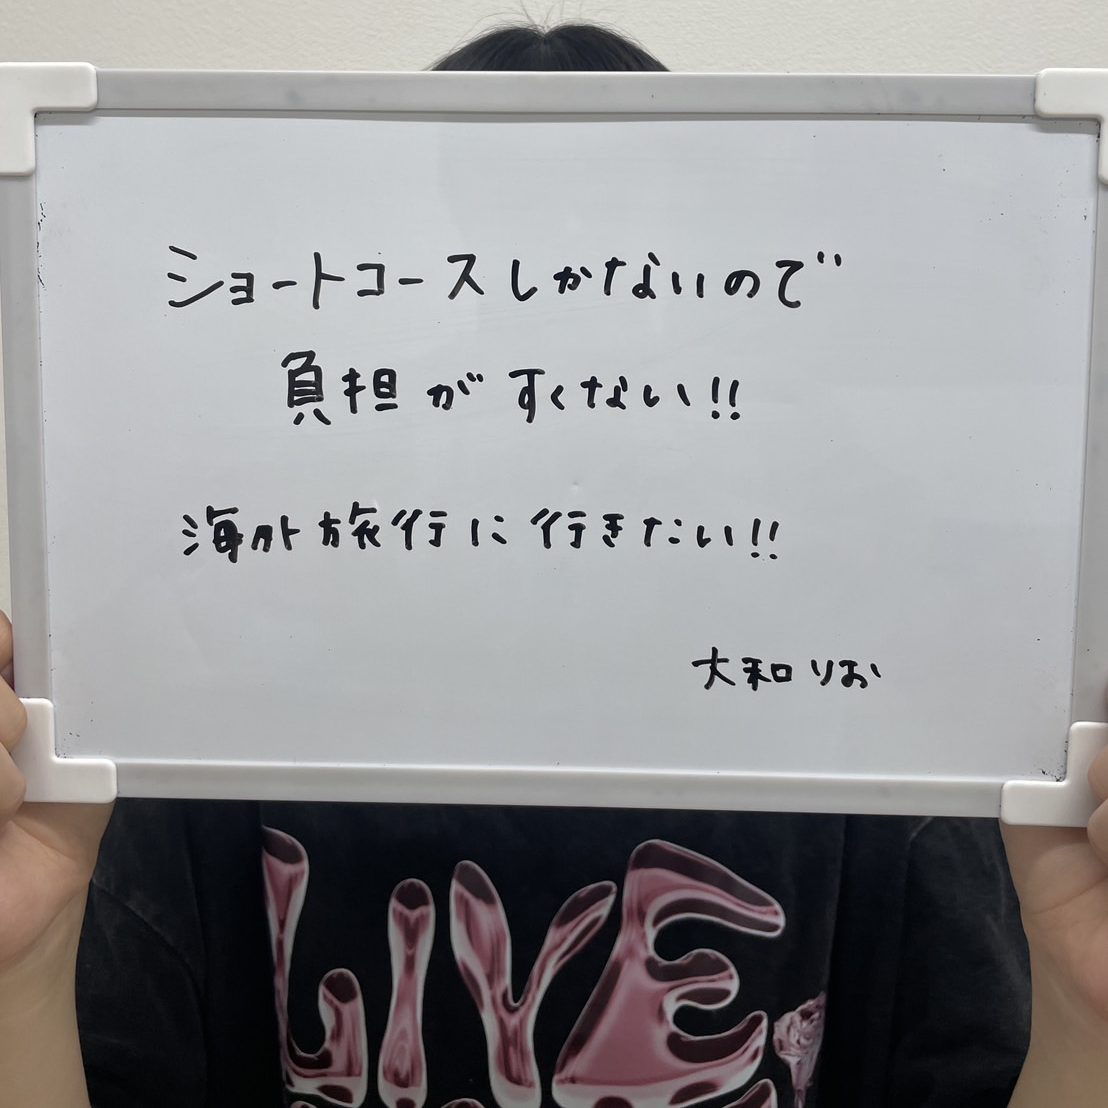 ショートコースしかないので
負担がすくない!!
海外旅行に行きたい!!
大和りお
LIVE